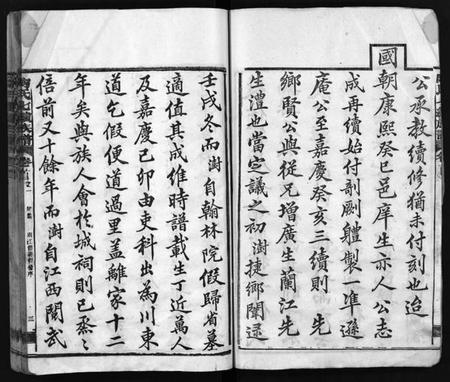 公承教續修猶未付刻也迨
國朝康熙癸巳邑庠生亦人公志
成再續始付剞劂體製一準遜
庵公至嘉慶癸亥三續則 先
鄉賢公與從兄增廣生蘭江先
生澧也當定議之初澍捷鄉闈逕
壬戌冬而澍自翰林院假歸省墓
適值其成維時譜載生丁近萬人
及嘉慶己卯由吏科出為川東
道乞假便道過里蓋離家十二
年矣與族人會於城祠則已烝烝
倍前又十餘年而澍自江西閱武